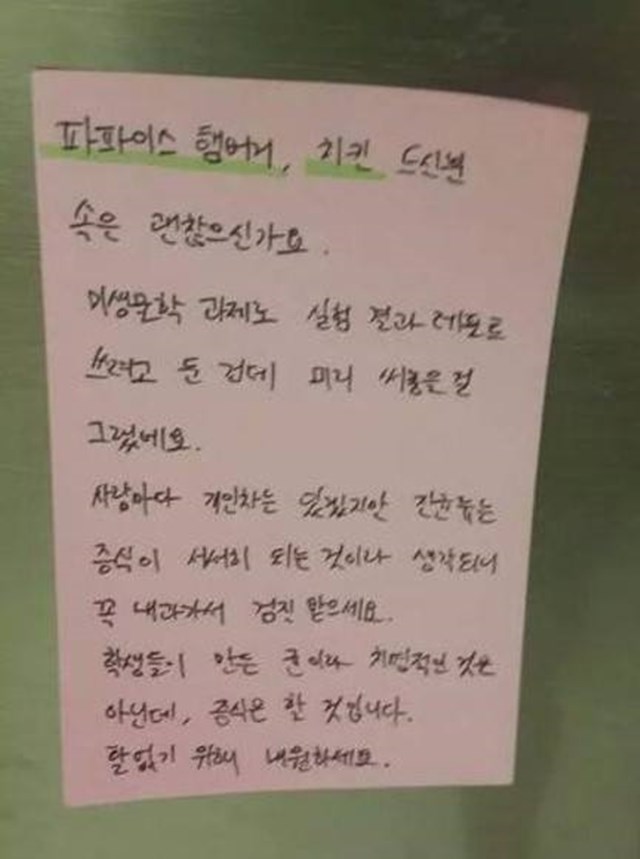 파파이스 햄버거, 치킨 드신분
속은 괜찮으신가요.
미생물학 과제로 실험 결과 레포트
쓰려고 둔 건데 미리 써놓은걸
그랬네요.
사람마다 개인차는 있겠지만 간균류는
증식이 서서히 되는 것이라 생각되니
꼭 내과가서 검진 받으세요.
학생들이 만든 균이라 치명적인 것은
아닌데, 증식은 할 것입니다.
탈없기 위해 내원하세요.